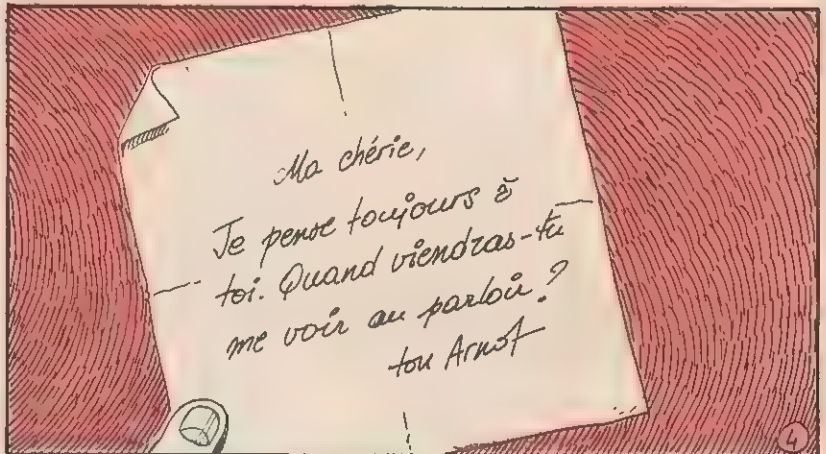 Ma chérie,
Je pense toujours à
toi. Quand viendras-tu
me voir au parloir ?
ton Arnot
4